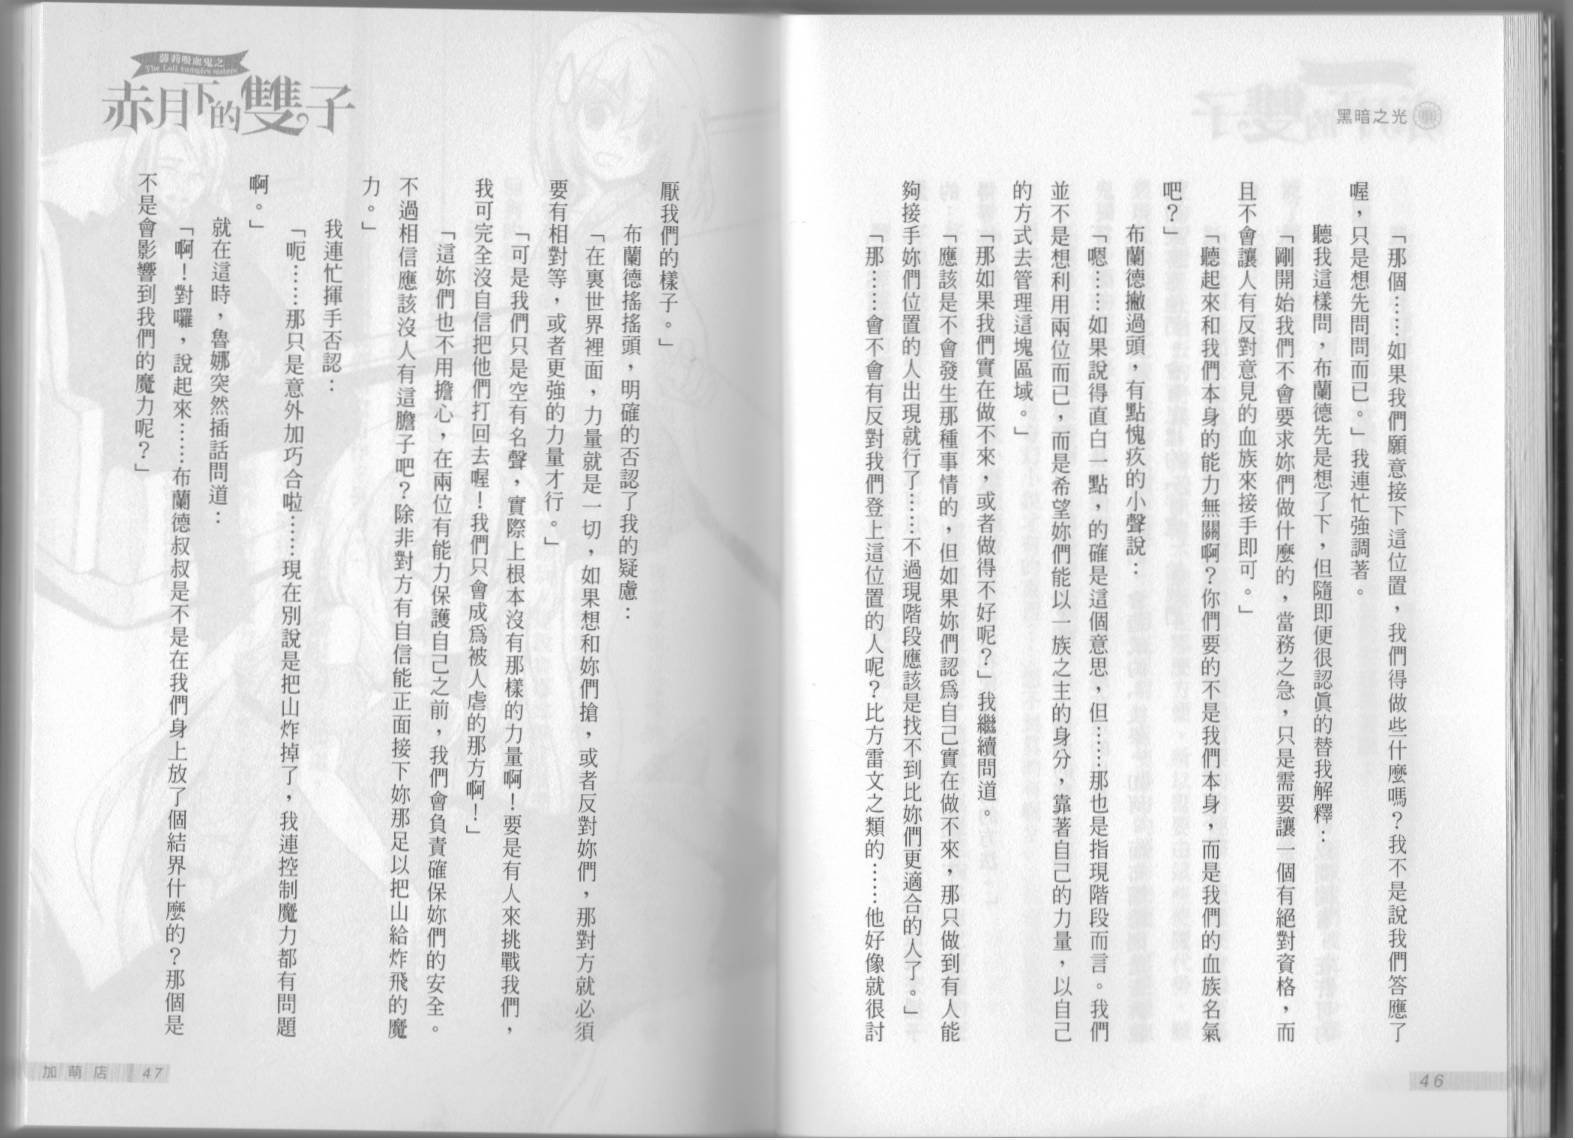 黑暗之光
「那個……如果我們願意接下這位置，我們得做些什麼嗎？我不是說我們答應了
喔，只是想先問問而已。」我連忙強調著。
聽我這樣問，布蘭德先是想了下，但隨即便很認眞的替我解釋：
「剛開始我們不會要求妳們做什麼的，當務之急，只是需要讓一個有絕對資格，而
且不會讓人有反對意見的血族來接手即可。」
「聽起來和我們本身的能力無關啊？你們要的不是我們本身，而是我們的血族名氣
吧？」
布蘭德撇過頭，有點愧疚的小聲說：
「嗯……如果說得直白一點，的確是這個意思，但……那也是指現階段而言。我們
並不是想利用兩位而已，而是希望妳們能以一族之主的身分，靠著自己的力量，以自己
的方式去管理這塊區域。」
「那如果我們實在做不來，或者做得不好呢？」我繼續問道。
「應該是不會發生那種事情的，但如果妳們認爲自己實在做不來，那只做到有人能
夠接手妳們位置的人出現就行了……不過現階段應該是找不到比妳們更適合的人了。」
「那……會不會有反對我們登上這位置的人呢？比方雷文之類的……他好像就很討
46
蘿莉吸血鬼之
The Loli vampire sisters
赤月下的雙子
厭我們的樣子。」
布蘭德搖搖頭，明確的否認了我的疑慮：
「在裏世界裡面，力量就是一切，如果想和妳們搶，或者反對妳們，那對方就必須
要有相對等，或者更強的力量才行。」
「可是我們只是空有名聲，實際上根本沒有那樣的力量啊！要是有人來挑戰我們，
我可完全沒自信把他們打回去喔！我們只會成爲被人虐的那方啊！」
「這妳們也不用擔心，在兩位有能力保護自己之前，我們會負責確保妳們的安全。
不過相信應該沒人有這膽子吧？除非對方有自信能正面接下妳那足以把山給炸飛的魔
力。」
我連忙揮手否認：
「呃……那只是意外加巧合啦……現在別說是把山炸掉了，我連控制魔力都有問題
啊。」
就在這時，魯娜突然插話問道：
「啊！對囉，說起來……布蘭德叔叔是不是在我們身上放了個結界什麼的？那個是
不是會影響到我們的魔力呢？」
加萌店 47